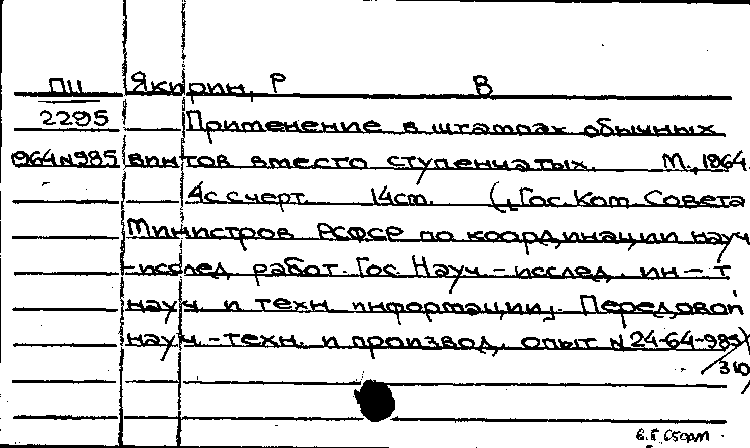 ПII Якирин, Р В
2295 Применение в штампах обычных
964 N985 винтов вместо ступенчатых. М., 1964.
4с с черт. 14см. (, Гос. Ком. Совета
Министров РСФСР по координации науч
-исслед. работ. Гос. Науч.-исслед. ин-т
науч. и техн. информации, Передовой
науч.-техн. и производ. опыт N 24-64-985)
310